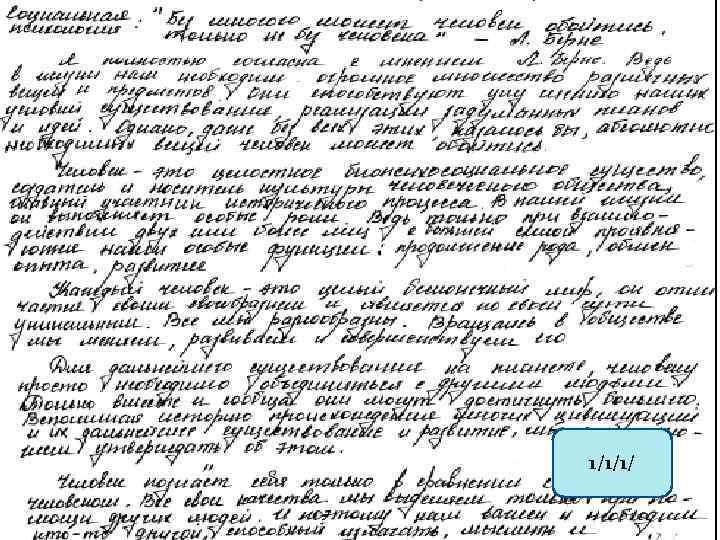 Социальная психология: "Без многого может человек обойтись,
только не без человека" – Л. Бёрне
Я полностью согласна с мнением Л. Бёрне. Ведь
в жизни нам необходимо огромное множество различных
вещей и предметов. Они способствуют улучшению наших
условий существования, реализации задуманных планов
и идей. Однако, даже без всех этих казалось бы, абсолютно
необходимых вещей человек может обойтись.
Человек – это целостное биопсихосоциальное существо,
создатель и носитель культуры человеческого общества,
главный участник исторического процесса. В нашей жизни
он выполняет особые роли. Ведь только при взаимо-
действии двух или более лиц с обеих проявля-
ются наши особые функции: продолжение рода, обмен
опыта, развитие
Каждый человек – это целый бесконечный мир, он отли
чается своим своеобразием и является по своей сути
уникальным. Все мы разнообразны. Вращаясь в обществе
мы меняем, развиваем и совершенствуем его
Для дальнейшего существования на планете, человеку
просто необходимо объединиться с другими людьми
Только вместе и сообща они могут достигнуть большего.
Вспоминая историю происхождения многих цивилизаций
и их дальнейшее существование и развитие,
жем утверждать об этом.
Человек познаёт себя только в сравнении с
человеком. Все свои качества мы выделяем только при по-
мощи других людей. И поэтому нам важен и необходим
кто-то другой, способный мыслить и
1/1/1/